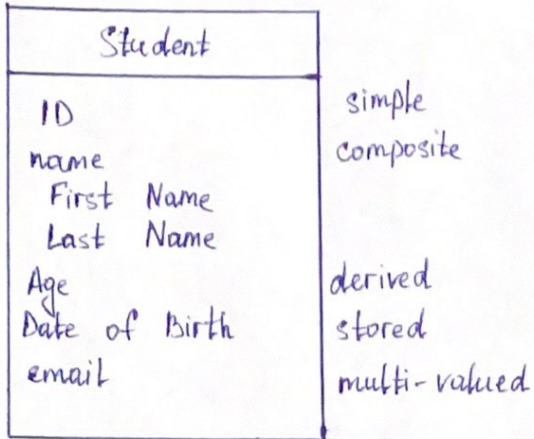 Student
ID simple
name composite
First Name
Last Name
Age derived
Date of Birth stored
email multi-valued